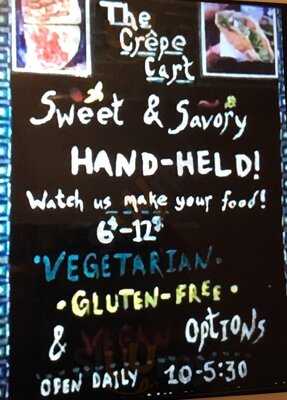 The
Crêpe
Cart
Sweet & Savory
HAND-HELD!
Watch us make your food!
6$-12$
VEGETARIAN
GLUTEN-FREE
& VEGAN OPTIONS
OPEN DAILY 10-5:30